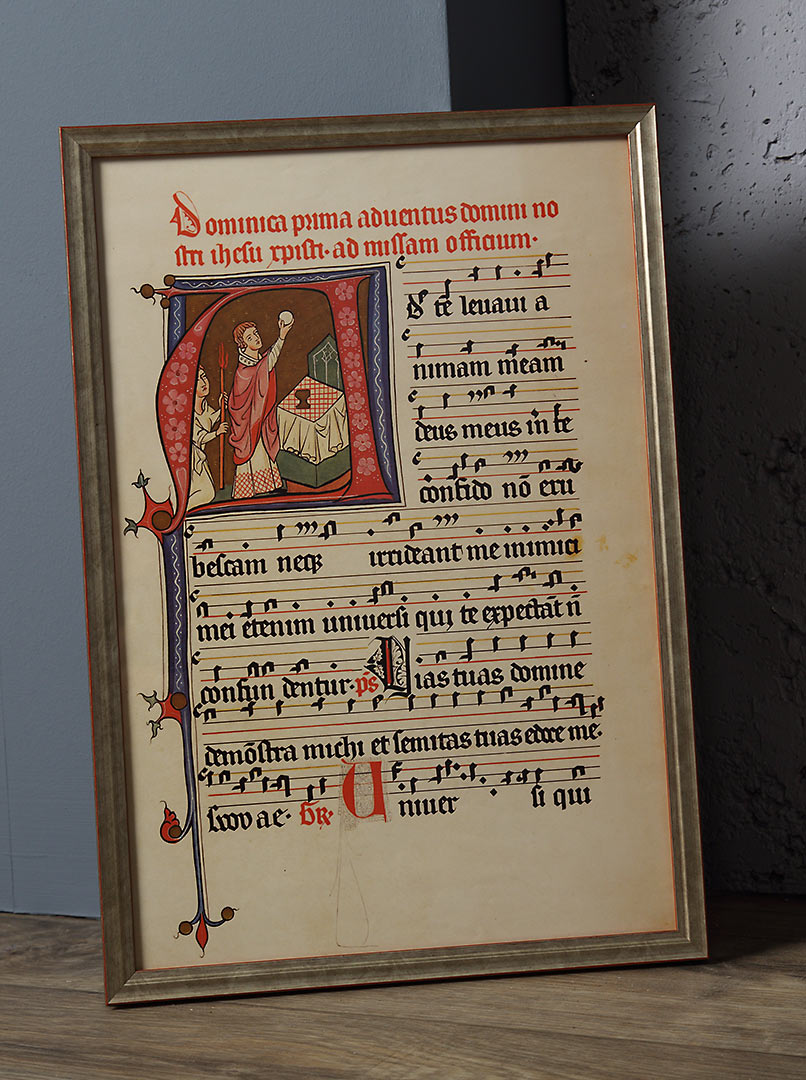 Dominica prima aduentus domini no
stri ihesu xpisti· ad missam officium·
Ad te leuaui a
nimam meam
deus meus in te
confido nō eru
bescam neqꝫ irrideant me inimici
mei etenim uniuersi qui te expectāt n̄
confun dentur· p̄s Uias tuas domine
demōstra michi et semitas tuas edoce me·
Seuouae· Uniuer si qui